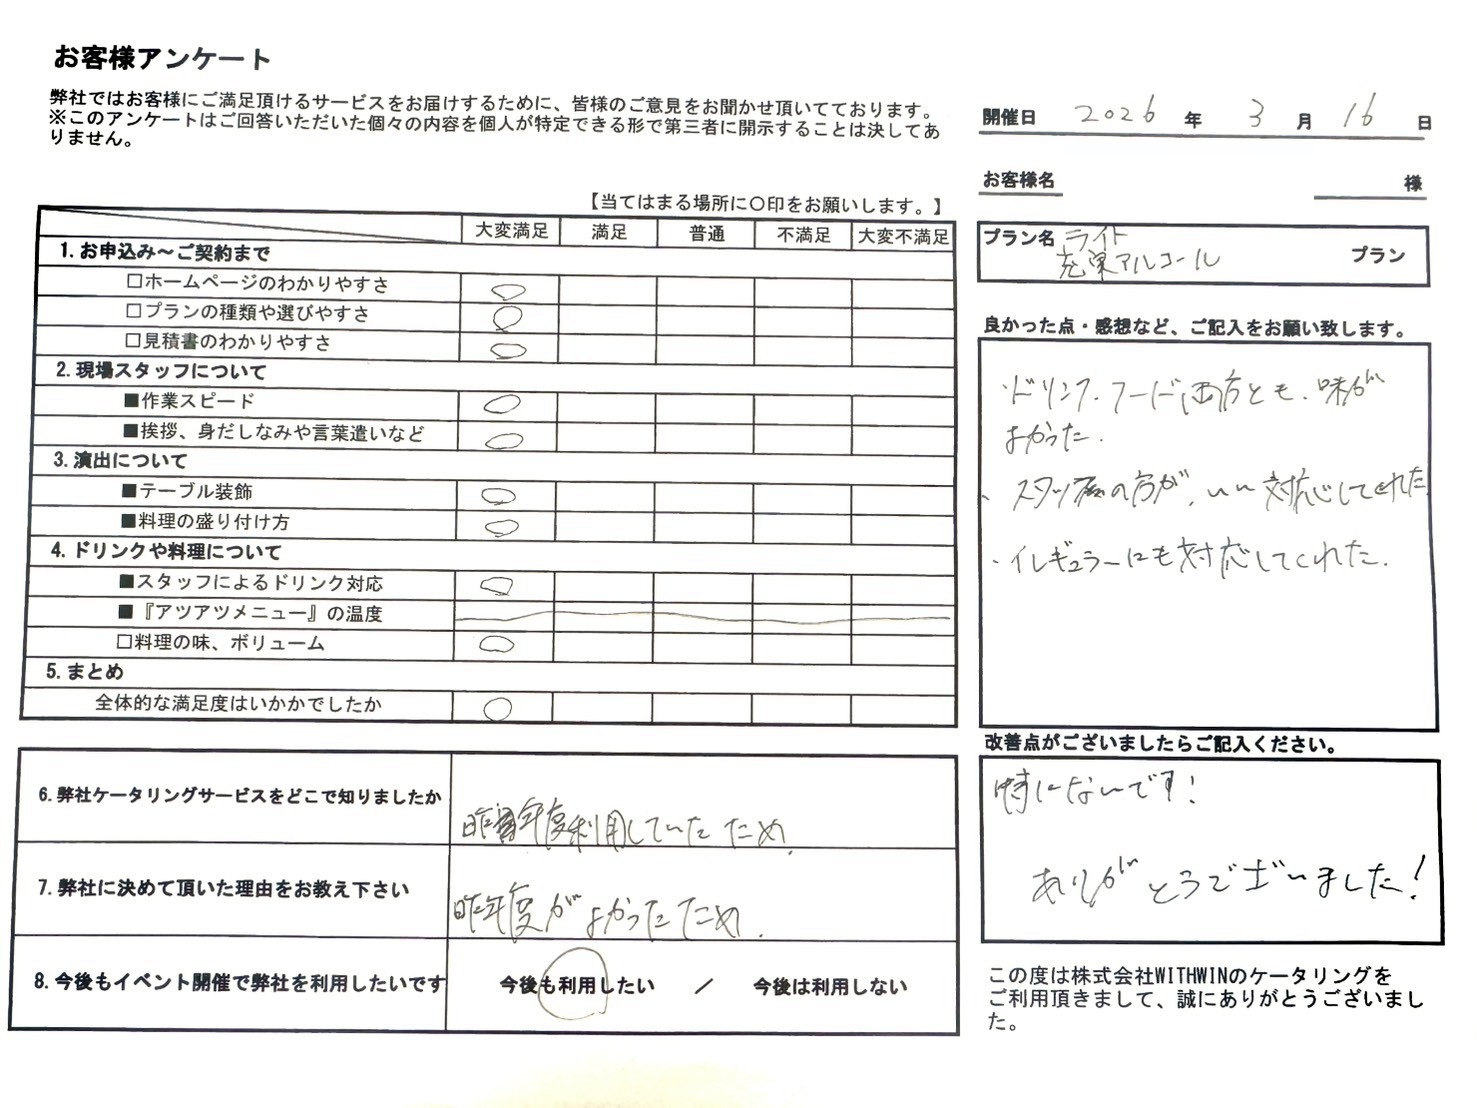 お客様アンケート
弊社ではお客様にご満足頂けるサービスをお届けするために、皆様のご意見をお聞かせ頂いてております。
※このアンケートはご回答いただいた個々の内容を個人が特定できる形で第三者に開示することは決してあ
りません。
開催日 2026 年 3 月 16 日
お客様名 様
プラン名 ライト
充実アルコール プラン
【当てはまる場所に〇印をお願いします。】
大変満足 満足 普通 不満足 大変不満足
1.お申込み～ご契約まで
□ホームページのわかりやすさ
□プランの種類や選びやすさ
□見積書のわかりやすさ
2.現場スタッフについて
■作業スピード
■挨拶、身だしなみや言葉遣いなど
3.演出について
■テーブル装飾
■料理の盛り付け方
4.ドリンクや料理について
■スタッフによるドリンク対応
■『アツアツメニュー』の温度
□料理の味、ボリューム
5.まとめ
全体的な満足度はいかかでしたか
6.弊社ケータリングサービスをどこで知りましたか
昨年度利用していたため.
7.弊社に決めて頂いた理由をお教え下さい
昨年度がよかったため.
8.今後もイベント開催で弊社を利用したいです
今後も利用したい ／ 今後は利用しない
良かった点・感想など、ご記入をお願い致します。
・ドリンク・フード両方とも、味が
よかった.
・スタッフの方が、いい対応してくれた
・イレギュラーにも対応してくれた.
改善点がございましたらご記入ください。
特にないです!
ありがとうございました!
この度は株式会社WITHWINのケータリングを
ご利用頂きまして、誠にありがとうございまし
た。